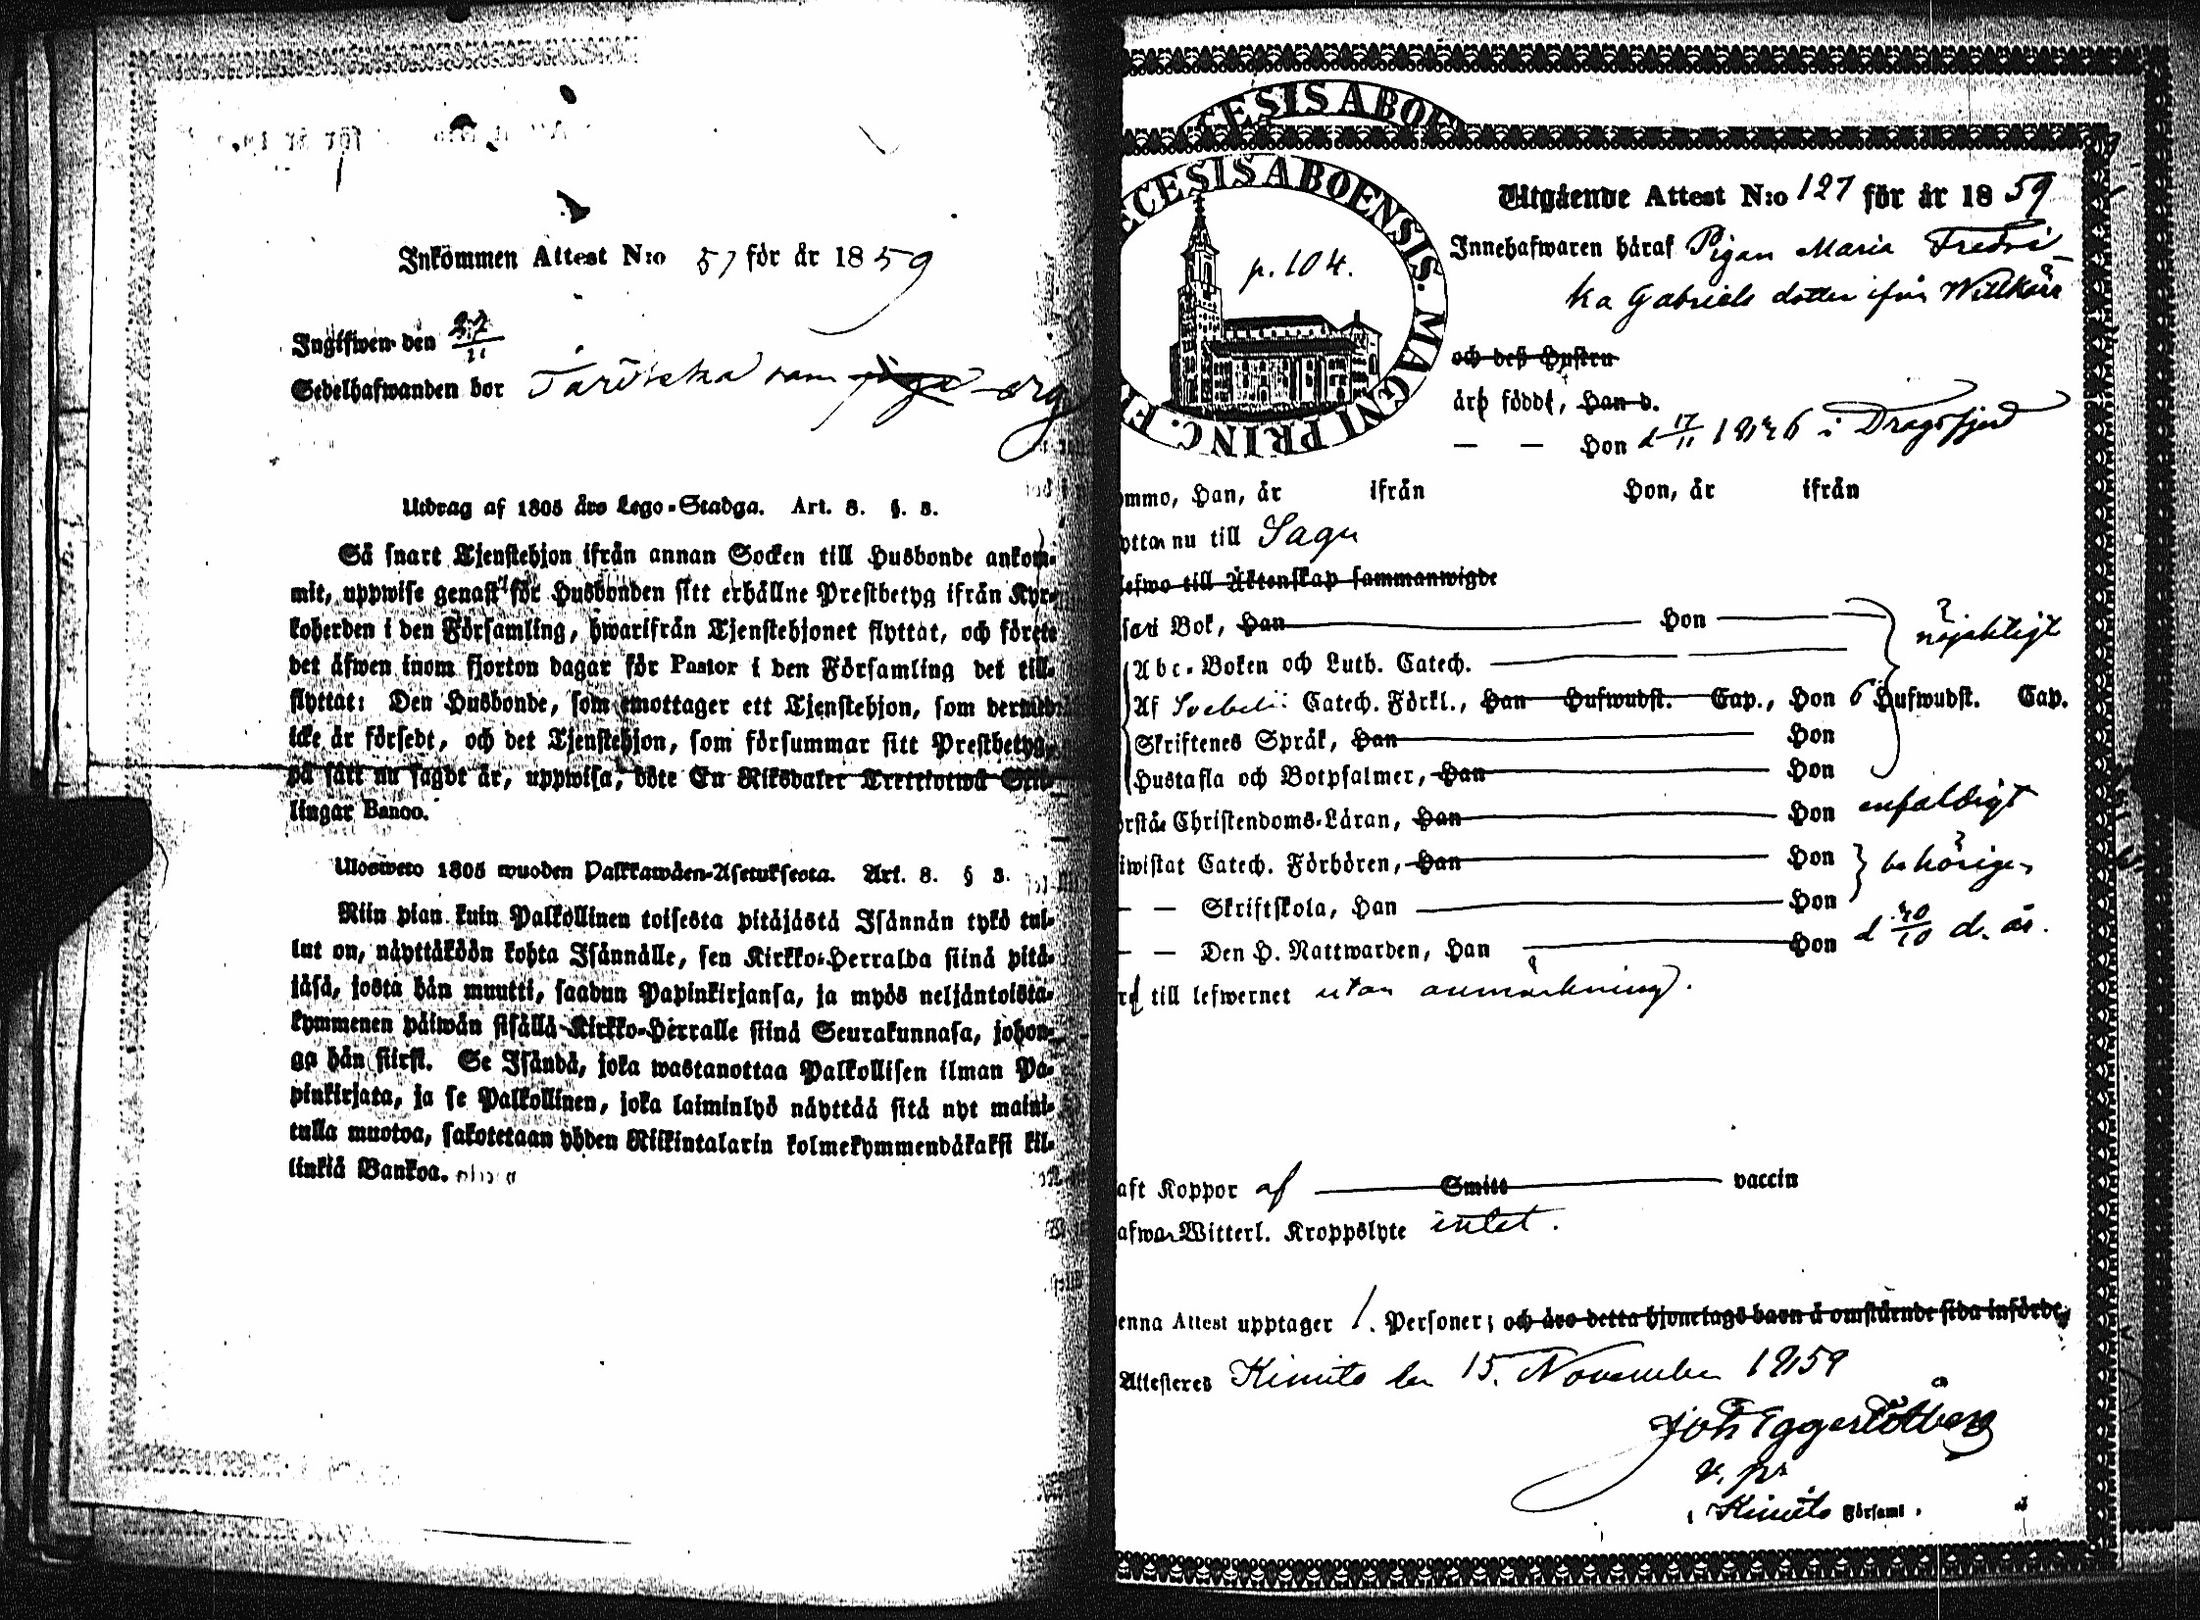 Inkommen Attest N:o 57 för år 1859
Ingifwen den 27/11
Sedelhafwanden bor som
Utdrag af 1805 års Lego-Stadga. Art. 8. §. 3.
Så snart Tjenstehjon ifrån annan Socken till Husbonde ankom-
mit, uppwise genast för Husbonden sitt erhållne Prestbetyg ifrån Kyr-
koherden i den Församling, hwarifrån Tjenstehjonet flyttat, och förete
det äfwen inom fjorton dagar för Pastor i den Församling det till-
flyttat: Den Husbonde, som emottager ett Tjenstehjon, som dermed
icke är försedt, och det Tjenstehjon, som försummar sitt Prestbetyg,
på sätt nu sagdt är, uppwisa, böte En Riksdaler Trettiotwå Skil-
lingar Banco.
Ulosweto 1805 wuoden Palkkawäen-Asetuksesta. Art. 8. § 3.
Niin pian kuin Palkollinen toisesta pitäjästä Isännän tykö tul-
lut on, näyttäköön kohta Isännälle, sen Kirkko-Herralda siinä pitä-
jäsä, josta hän muutti, saadun Papinkirjansa, ja myös neljäntoista-
kymmenen päiwän sisällä Kirkko-Herralle siinä Seurakunnasa, johon-
ga hän siirsi. Se Isändä, joka wastanottaa Palkollisen ilman Pa-
pinkirjata, ja se Palkollinen, joka laiminlyö näyttää sitä nyt maini-
tulla muotoa, sakotetaan yhden Riikintalarin kolmekymmendäkaksi kil-
linkiä Bankoa.
CESIS ABOE
ECESIS ABOENSIS. MAGNI PRINC. F
p. 104.
Utgående Attest N:o 127 för år 1859
Innehafwaren häraf Pigan Maria Fredri-
ka Gabriels dotter ifrån Willkärr
och deß Hustru
är född, Han d.
— — Hon d 17/11 1826 i Dragsfjerd
ommo, Han, år ifrån Hon, år ifrån
yttar nu till Sagu
lefwo till Äktenskap sammanwigde
sari Bok, Han Hon nöjaktigt
Abc-Boken och Luth. Catech.
Af Svebelii Catech. Förkl., Han Hufwudst. Cap., Hon 6 Hufwudst. Cap.
Skriftenes Språk, Han Hon
Hustafla och Botpsalmer, Han Hon
örstå Christendoms-Läran, Han Hon enfaldigt
iwistat Catech. Förhören, Han Hon behörigen
— — Skriftskola, Han Hon
— — Den H. Nattwarden, Han Hon d 30/10 d. år.
rd till lefwernet utan anmärkning.
aft Koppor af Smitt vaccin
afwa Witterl. Kroppslyte intet.
enna Attest upptager 1. Personer; och äro detta hjonelags barn å omstående sida införde,
Attesteras Kimito den 15. November 1859
Joh Eggert
v. p.
i Kimito Församl.